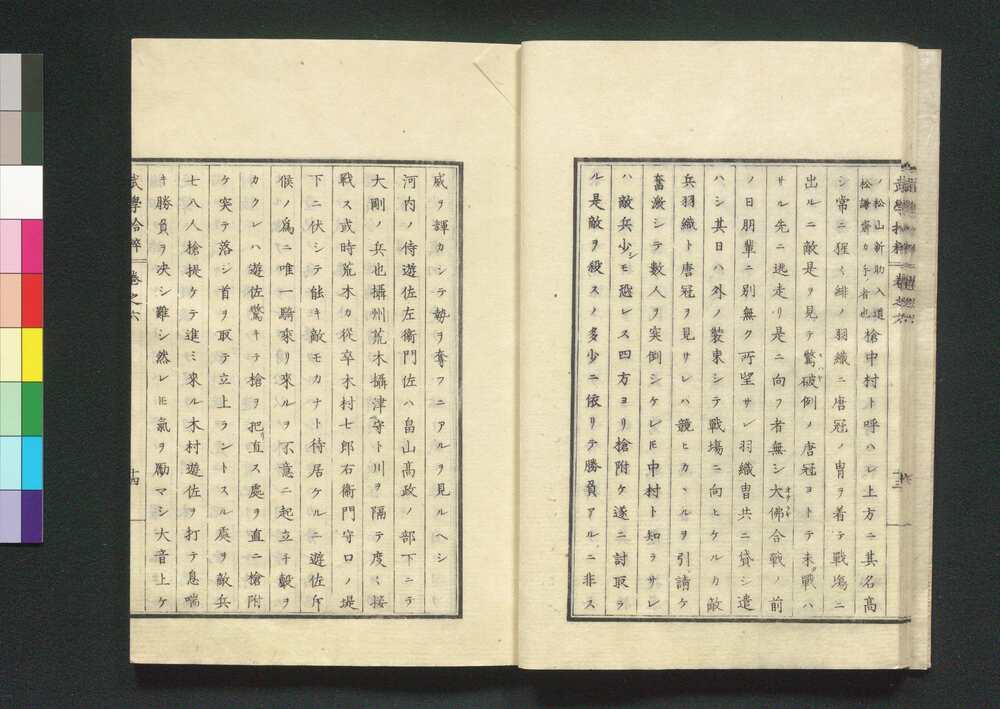 ノ松山新助入道
松謙齋カ手者也
槍中村ト呼ハレ上方ニ其名髙
シ常ニ猩〻緋ノ羽織ニ唐冠ノ冑ヲ着テ戰塲ニ
出ルニ敵是ヲ見テ驚破例ノ唐冠ヨトテ未戰ハ
サル先ニ逃走リ是ニ向フ者無シ大佛合戰ノ前
ノ日朋輩ニ別無ク所望サレ羽織冑共ニ貸シ遣
ハシ其日ハ外ノ裝束シテ戰場ニ向ヒケルカ敵
兵羽織ト唐冠ヲ見サレハ競ヒカヽルヲ引請ケ
奮激シテ數人ヲ突倒シケレ𪜈中村ト知ラサレ
ハ敵兵少シモ恐レス四方ヨリ搶附ケ遂ニ討取ラ
ル是敵ヲ殺スノ多少ニ依リテ勝負アルニ非ス
威ヲ譚カシテ勢ヲ奪フニアルヲ見ルヘシ
河内ノ侍遊佐左衛門佐ハ畠山髙政ノ部下ニテ
大剛ノ兵也攝州荒木攝津守ト川ヲ隔テ度〻接
戰ス或時荒木カ從卒木村七郎右衛門守口ノ堤
下ニ伏シテ能キ敵モカナト待居ケルニ遊佐斥
候ノ爲ニ唯一騎來リ來ルヲ不意ニ起立チ轂ヲ
カクレハ遊佐驚キテ槍ヲ把直ス處ヲ直ニ槍附
ケ突テ落シ首ヲ取テ立上ラントスル處ヲ敵兵
七八人槍提ケテ進ミ來ル木村遊佐ヲ打テ息喘
キ勝負ヲ決シ難シ然レ𪜈氣ヲ勵マシ大音上ケ
武學拾粹 卷之六 十四